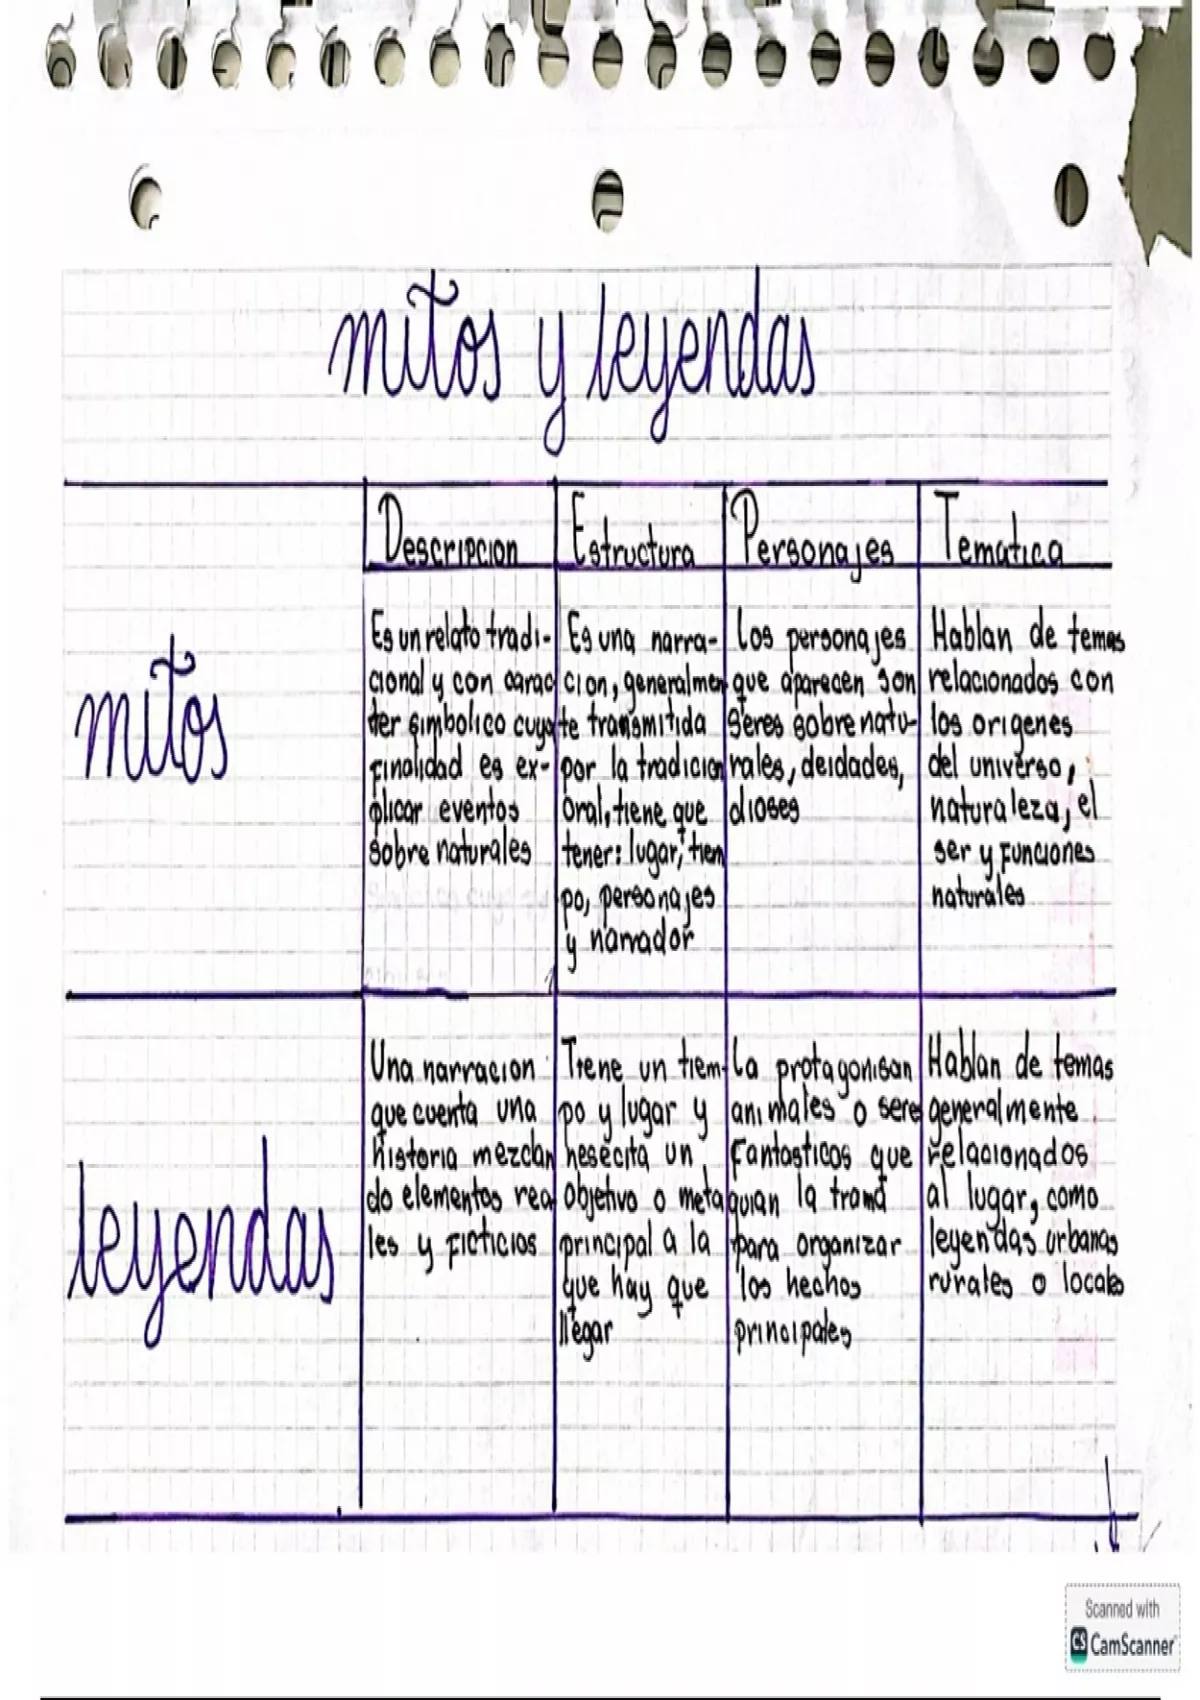 mitos y leyendas
Descripcion
Estructura
Personajes
Tematica
mitos
Es un relato tradi-
cional y con carac
ter simbolico cuya
finalidad es ex-
plicar eventos
sobre naturales
Es una narra-
cion, generalmen
te transmitida
por la tradicion
oral, tiene que
tener: lugar, tiem
po, personajes
y narrador
Los personajes
que aparecen son
seres sobre natu-
rales, deidades,
dioses
Hablan de temas
relacionados con
los origenes
del universo,
naturaleza, el
ser y funciones
naturales
leyendas
Una narracion
que cuenta una
historia mezclan
do elementos rea
les y ficticios
Tiene un tiem-
po y lugar y
nesecita un
objetivo o meta
principal a la
que hay que
llegar
La protagonisan
animales o sere
fantasticos que
guian la trama
para organizar
los hechos
principales
Hablan de temas
generalmente
relacionados
al lugar, como
leyendas urbanas
rurales o locales
Scanned with
CS CamScanner